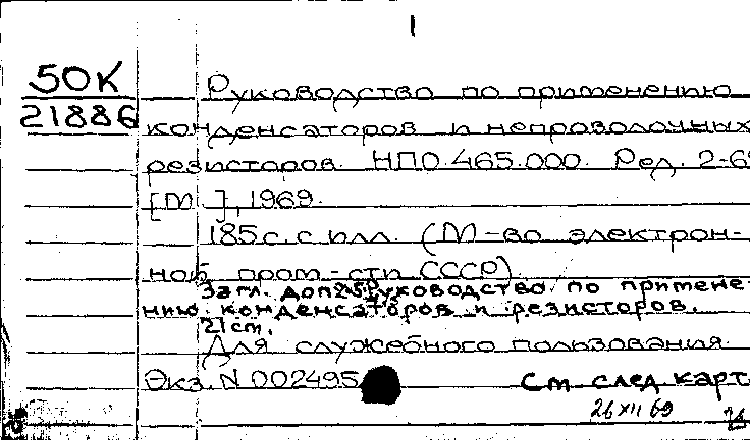 1
50К
21886
Руководство по применению
конденсаторов и непроволочных
резисторов. НПО.465.000. Ред. 2-6
[М.], 1969.
185 с. с илл. (М-во электрон-
ной пром-сти СССР)
Загл. доп. Руководство по примене-
нию конденсаторов и резисторов.
21 ст.
Для служебного пользования.
Экз. N 002495
См след карт
26 XII 69